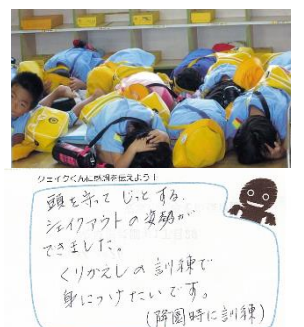 シェイクくんに感想を伝えよう!
頭を守って じっとする、
シェイクアウトの姿勢が
できました。
くりかえしの訓練で
身につけたいです。
(降園時に訓練)